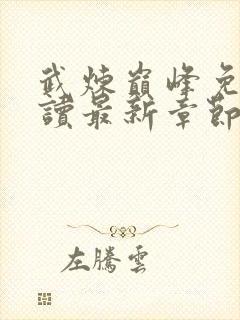 武煉巔峰免
讀最新章節
左騰雲